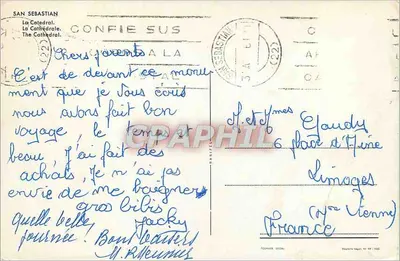 SAN SEBASTIAN
La Catedral.
La Cathédrale.
The Cathedral.
CONFIE SUS
A LA
AL
(22)
(22)
Chers parents
C'est de devant ce monu
ment que je vous écris
nous avons fait bon
voyage, le temps est
beau, J'ai fait des
achats, Je n'ai pas
envie de me baigner
gros bibis
Jacky
Quelle belle
journée! Bons baisers
CPARPHIL
M. et Mmes Gaudy
6 place d'Aine
Limoges
(Hte Vienne)
France